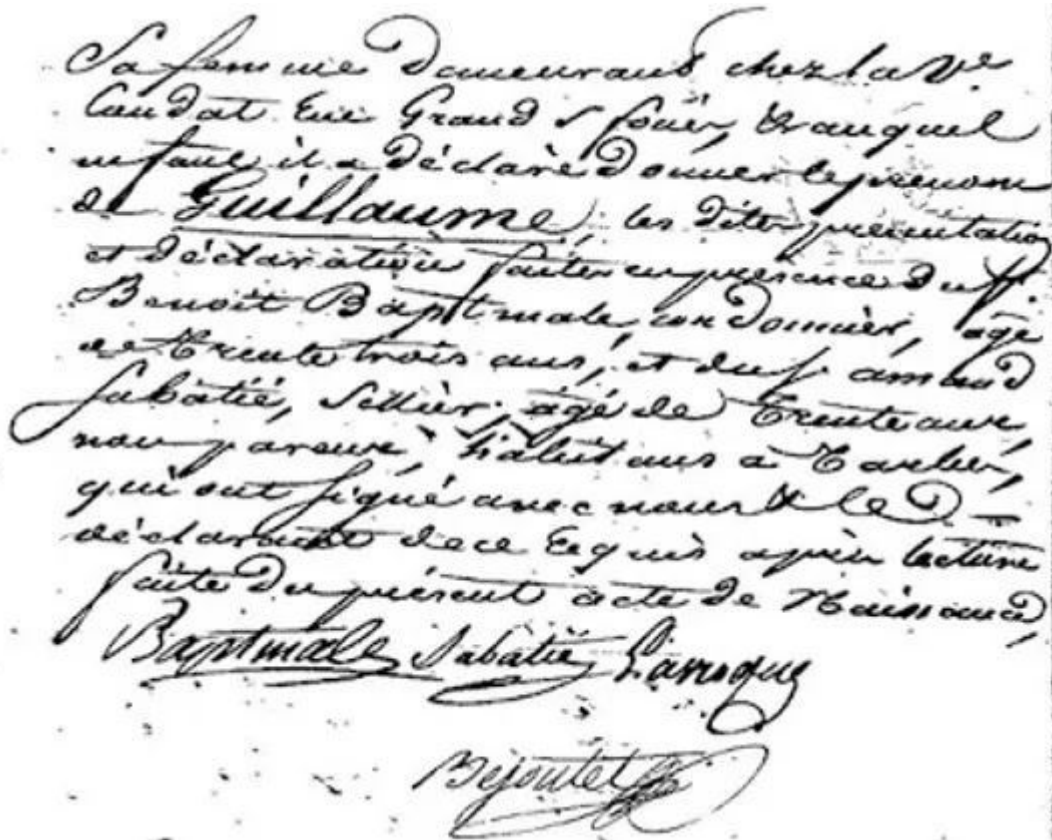 Sa femme demeurant chez la Ve
Caudat rüe Grand S foüer, & auquel
enfant il a déclaré donner le prenom
de Guillaume, les dites présentation
et déclaration faites en presence du Sr.
Benoit Baptmale, cordonnier, agé
de trente trois ans, et du Sr amand
Sabatié, Sellier, agé de Trente ans,
non parens, habitans à Tarbes,
qui ont signé avec nous & le d
déclarant de ce requis après lecture
faite du présent acte de Naissance,
Baptmale Sabatié Larroque
Bejoutet